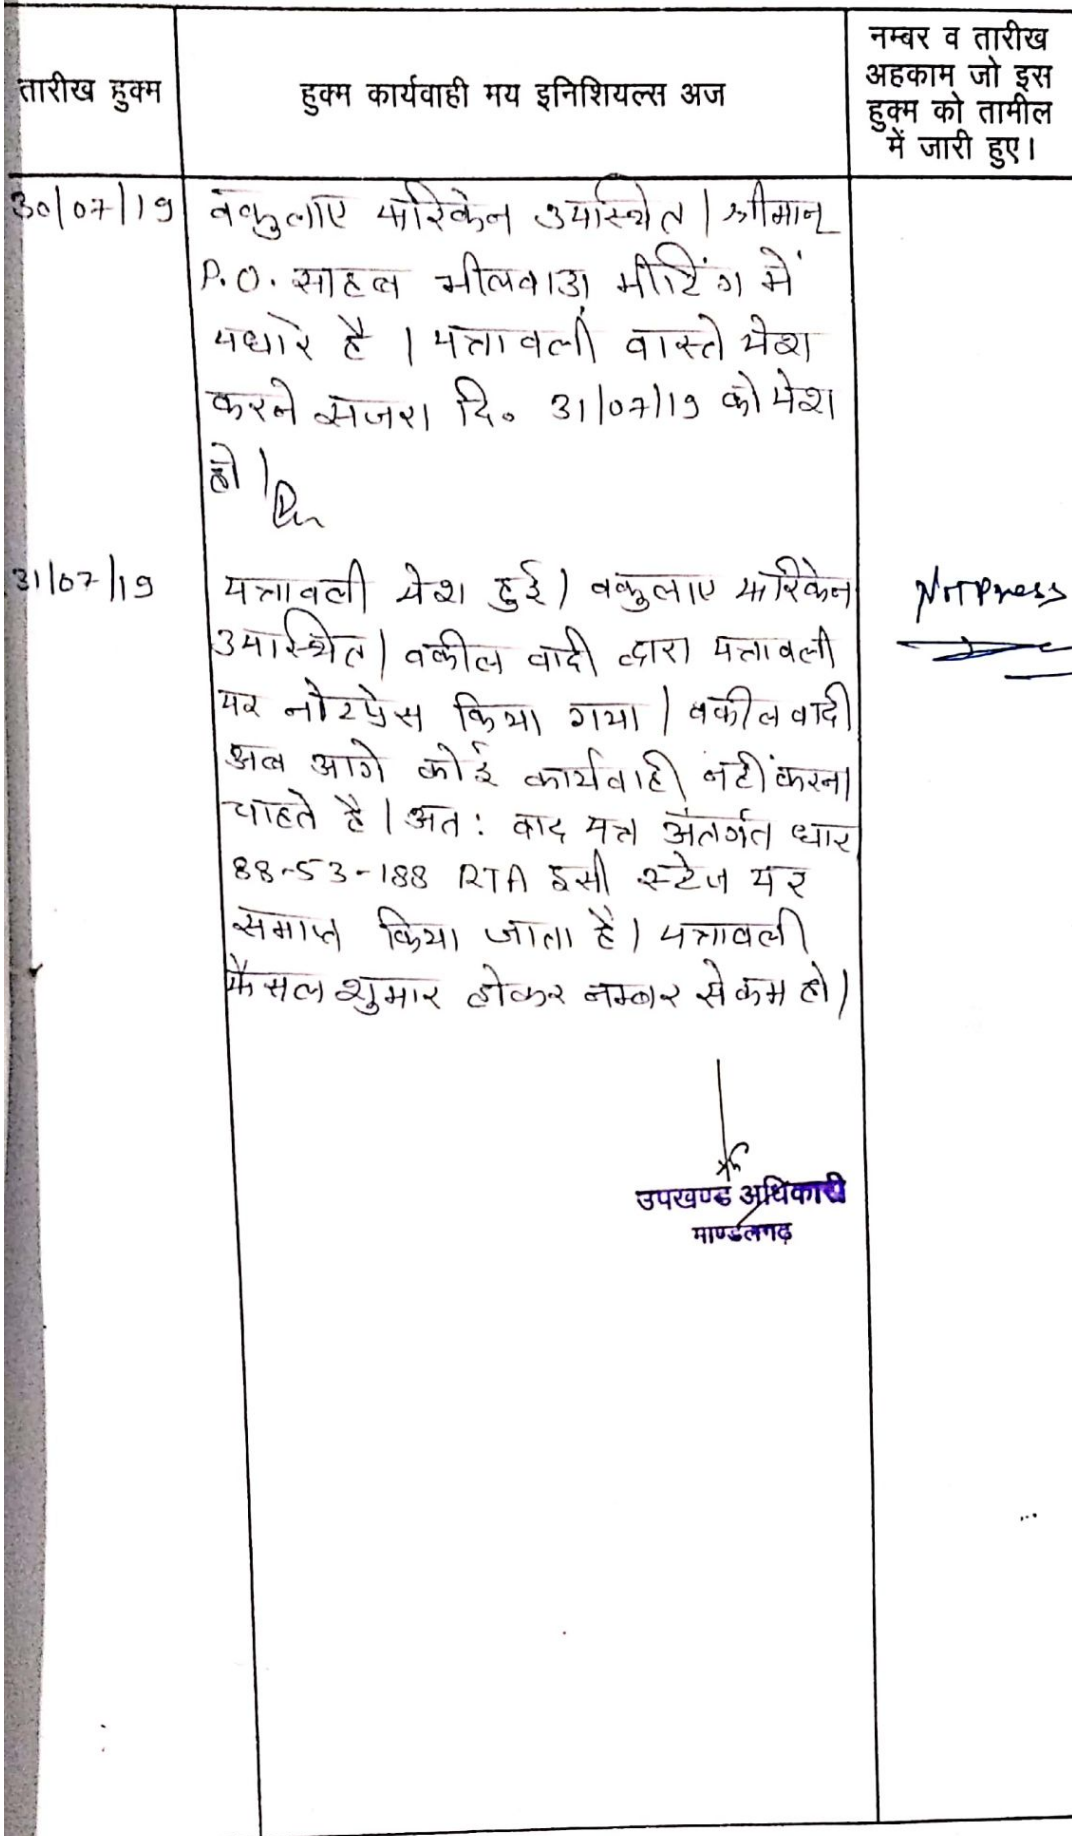 तारीख हुक्म
हुक्म कार्यवाही मय इनिशियल्स अज
नम्बर व तारीख
अहकाम जो इस
हुक्म को तामील
में जारी हुए।
30/07/19
वकुलाए फरिकेन उपस्थित। श्रीमान्
P.O. साहब भीलवाडा मीटिंग में
पधारे है। पत्रावली वास्ते पेश
करने सजरा दि. 31/07/19 को पेश
हो।
31/07/19
पत्रावली पेश हुई। वकुलाए फरिकेन
उपस्थित। वकील वादी द्वारा पत्रावली
पर नोटप्रेस किया गया। वकील वादी
अब आगे कोई कार्यवाही नहीं करना
चाहते है। अतः वाद पत्र अंतर्गत धारा
88-53-188 RTA इसी स्टेज पर
समाप्त किया जाता है। पत्रावली
फैसल शुमार होकर नम्बर से कम हो।
Not press
उपखण्ड अधिकारी
माण्डलगढ़